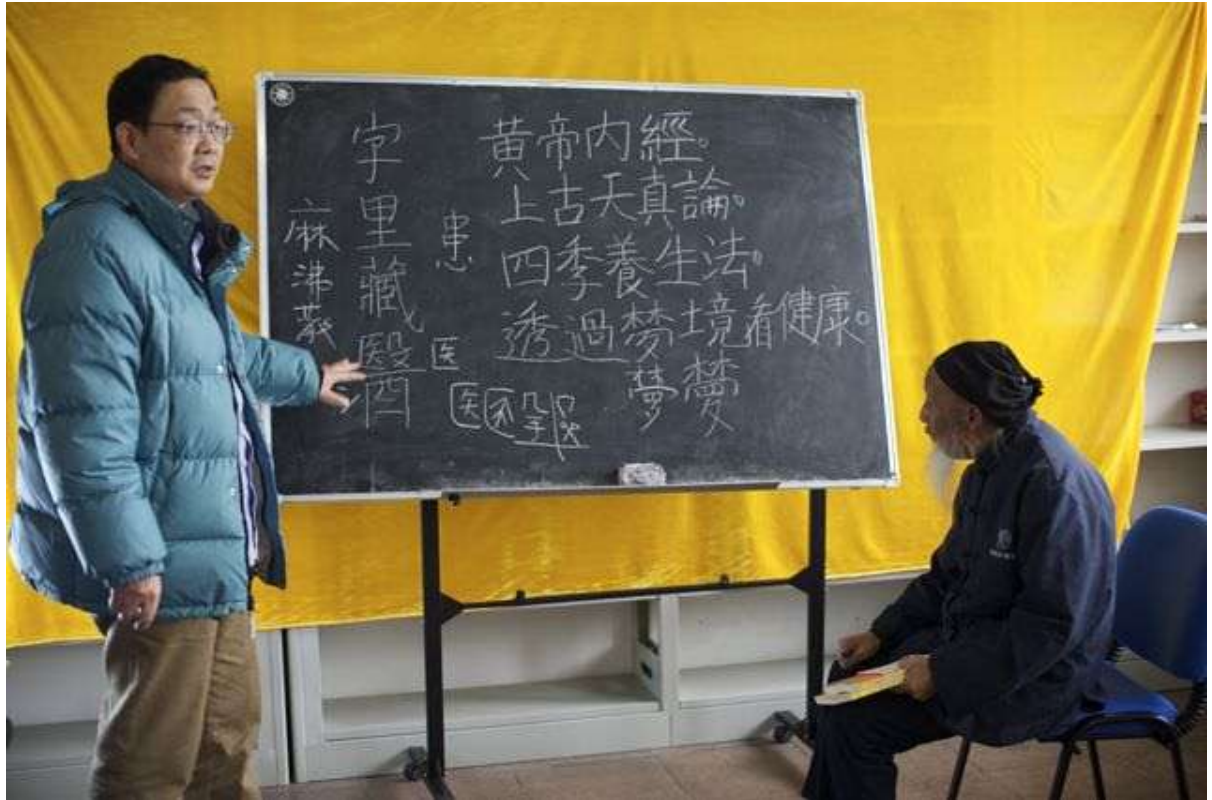 黃帝内經。
上古天真論。
四季養生法。
透過梦境看健康。
夢
字里藏醫
患
医
医
麻沸